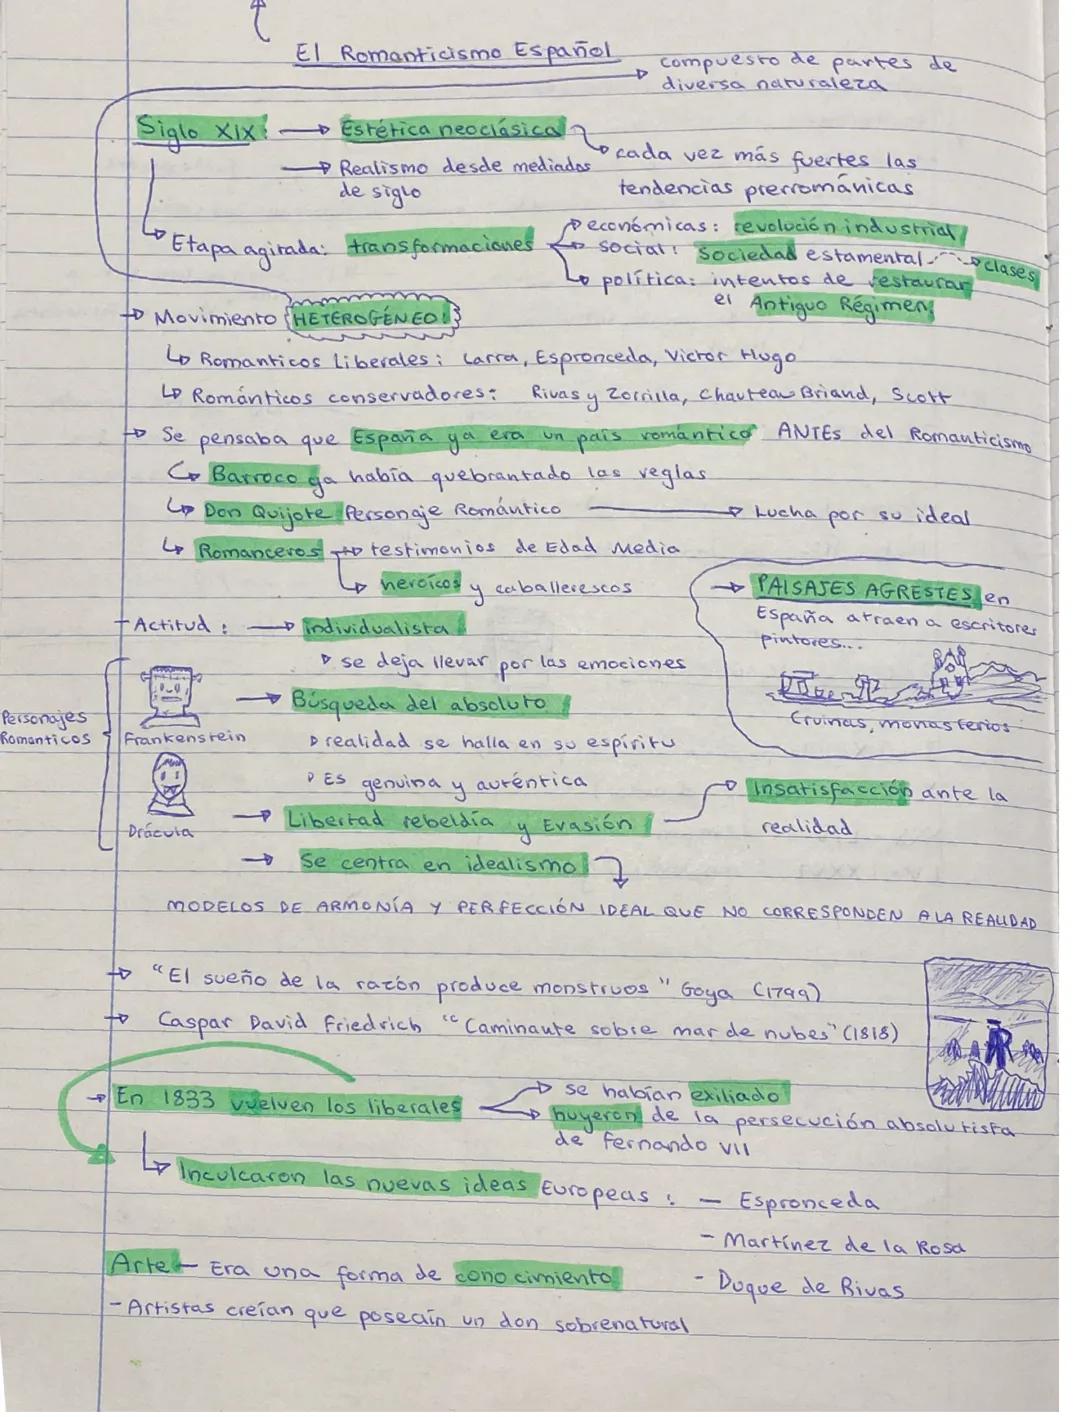 El Romanticismo Español
compuesto de partes de
diversa naturaleza
Siglo XIX: → Estética neoclásica
cada vez más fuertes las
tendencias prerrománicas
→ Realismo desde mediados
de siglo
Etapa agitada: transformaciones
económicas: revolución industrial
social: Sociedad estamental → clases
política: intentos de restaurar
el Antiguo Régimen
→ Movimiento HETEROGÉNEO
↳ Romanticos Liberales: Larra, Espronceda, Victor Hugo
↳ Románticos conservadores: Rivas y Zorrilla, Chauteau Briand, Scott
→ Se pensaba que España ya era un país romántico ANTES del Romanticismo
↳ Barroco ya había quebrantado las reglas
↳ Don Quijote Personaje Romántico → Lucha por su ideal
↳ Romanceros → testimonios de Edad Media
↳ heroícos y caballerescos
→ PAISAJES AGRESTES en
España atraen a escritores
pintores...
Cruinas, monasterios
- Actitud: → individualista
▷ se deja llevar por las emociones
→ Búsqueda del absoluto
▷ realidad se halla en su espíritu
▷ Es genuina y auténtica
→ Libertad rebeldía y Evasión → Insatisfacción ante la
realidad
→ Se centra en idealismo
Personajes
Romanticos
Frankenstein
Drácula
MODELOS DE ARMONÍA Y PERFECCIÓN IDEAL QUE NO CORRESPONDEN A LA REALIDAD
→ "El sueño de la razón produce monstruos" Goya (1799)
→ Caspar David Friedrich "Caminante sobre mar de nubes" (1818)
→ En 1833 vuelven los liberales
→ se habían exiliado
→ huyeron de la persecución absolutista
de Fernando VII
↳ Inculcaron las nuevas ideas Europeas: - Espronceda
- Martínez de la Rosa
- Duque de Rivas
Arte - Era una forma de conocimiento
- Artistas creían que poseaín un don sobrenatural